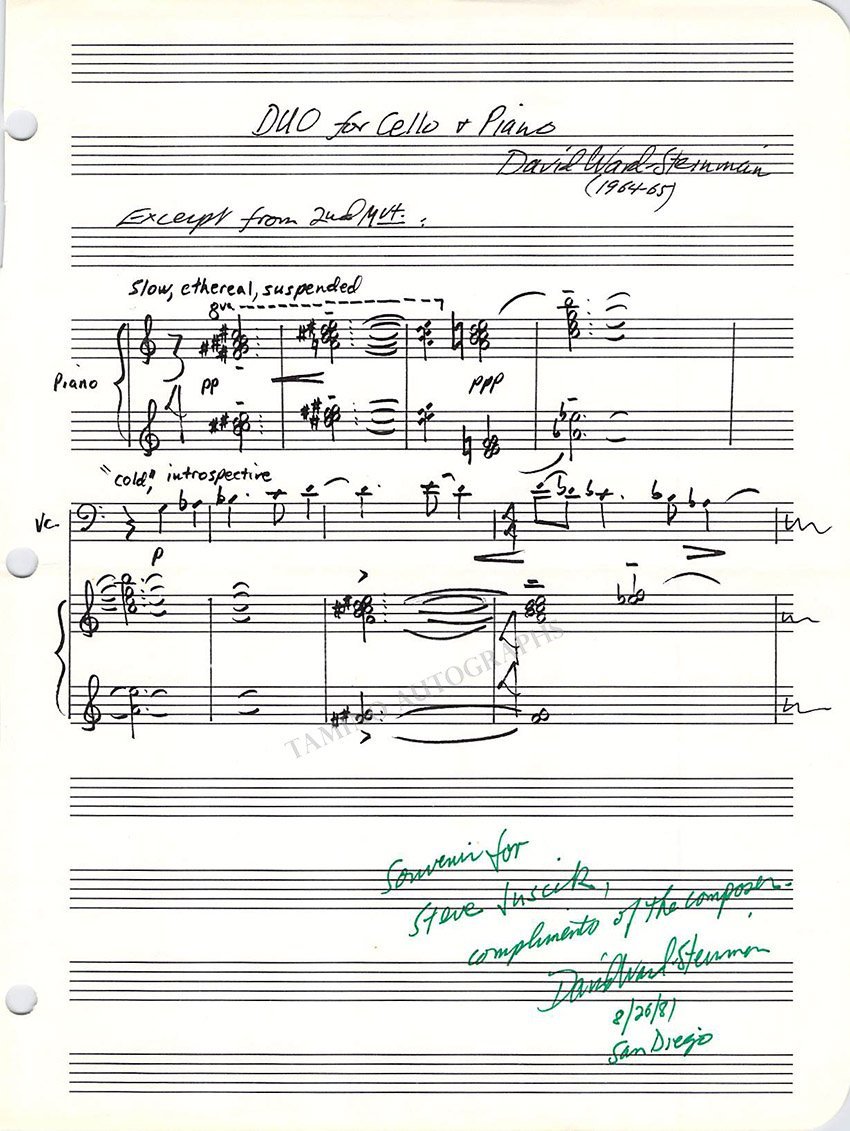 DUO for Cello + Piano
David Ward-Steinman
(1964-65)
Excerpt from 2nd Mvt. :
Slow, ethereal, suspended
8va
Piano
pp
ppp
"cold," introspective
Vc.
p
TAMINO AUTOGRAPHS
Souvenir for
Steve
compliments of the composer.
David Ward-Steinman
8/26/81
San Diego